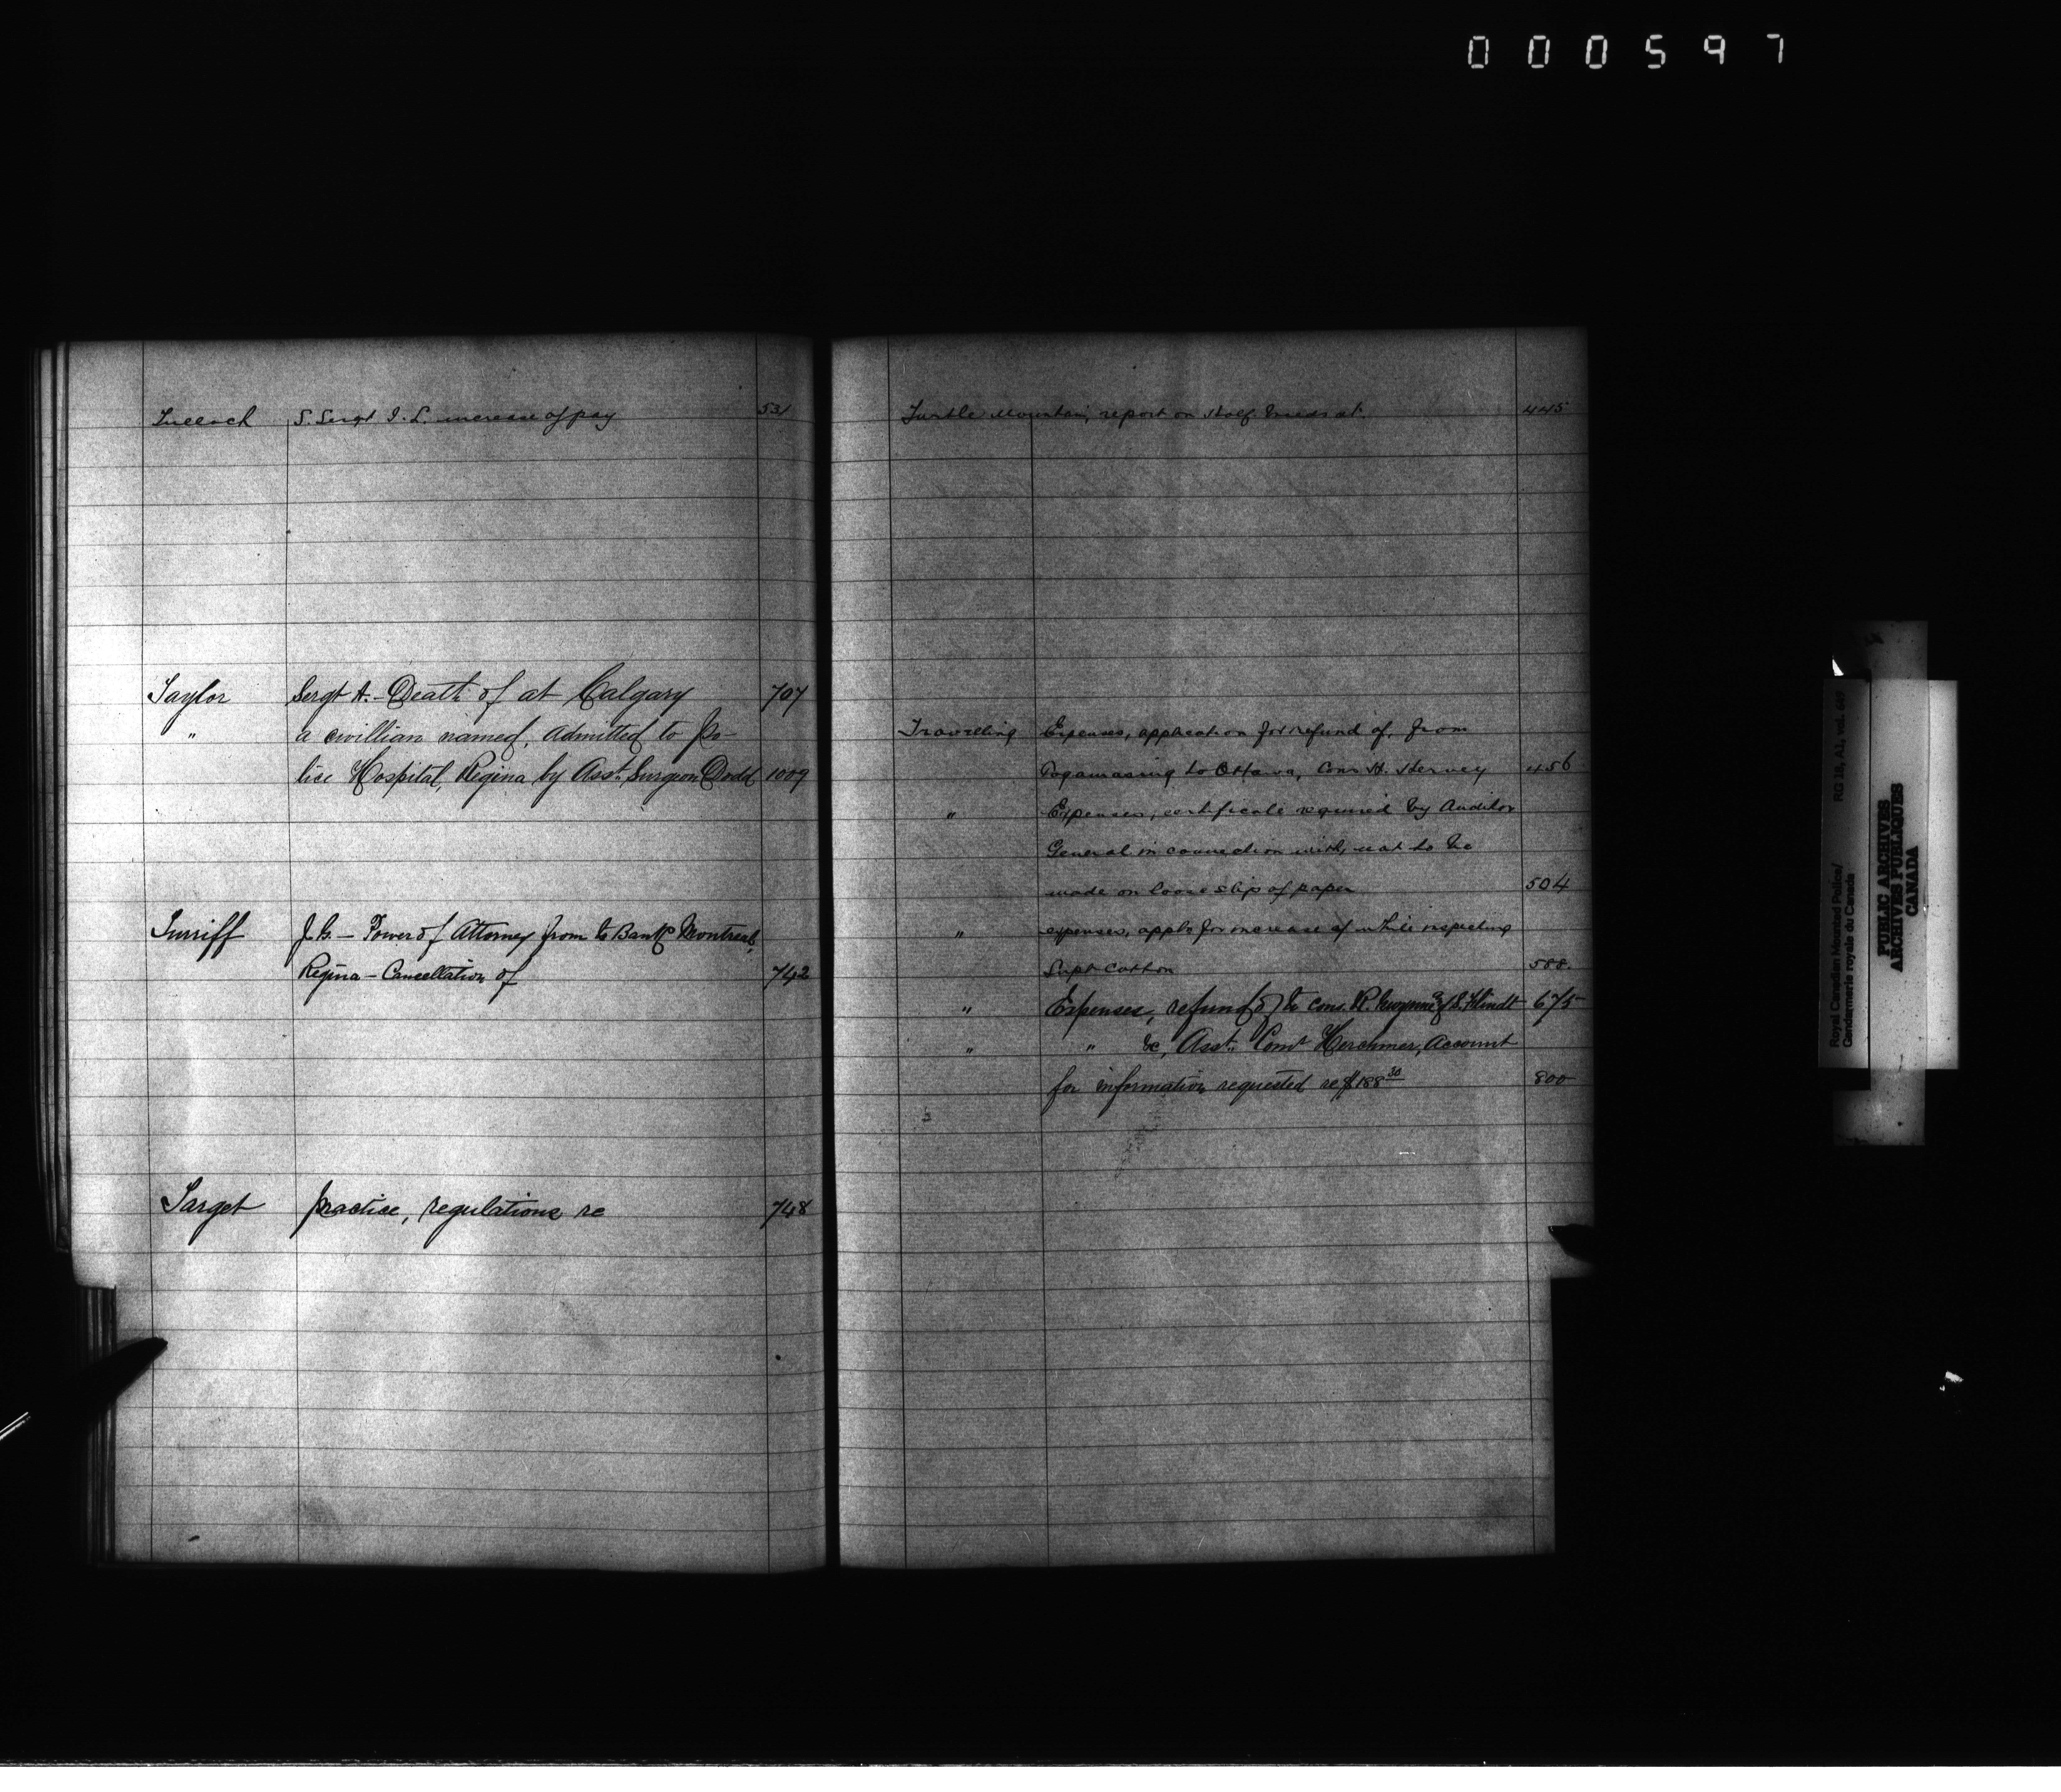 000597
Tulloch S. Sergt I. L. increase of pay 531
Taylor Sergt A. - Death of at Calgary 707
" a civillian named, admitted to Po-
lice Hospital, Regina by Asst. Surgeon Dodd 1009
Turriff J. G. - Power of Attorney from to Bank Montreal,
Regina - Cancellation of 742
Target practice, regulations re 748
Turtle Mountain, report on Half breeds at. 445
Travelling Expenses, application for refund of, from
to Ottawa, Cons H. Hervey 456
" Expenses, certificate required by Auditor
General in connection with, not to be
made on loose slips of paper 504
" expenses, appln for increase of while inspecting
Supt Cotton 588.
" Expenses, refund of to Cons. R. Gwynne & 675
" " &c, Asst. Comr Herchmer, Account
for information requested re $188 30 800
Royal Canadian Mounted Police/ RG 18, A1, vol.
Gendarmerie royale du Canada
PUBLIC ARCHIVES
ARCHIVES PUBLIQUES
CANADA